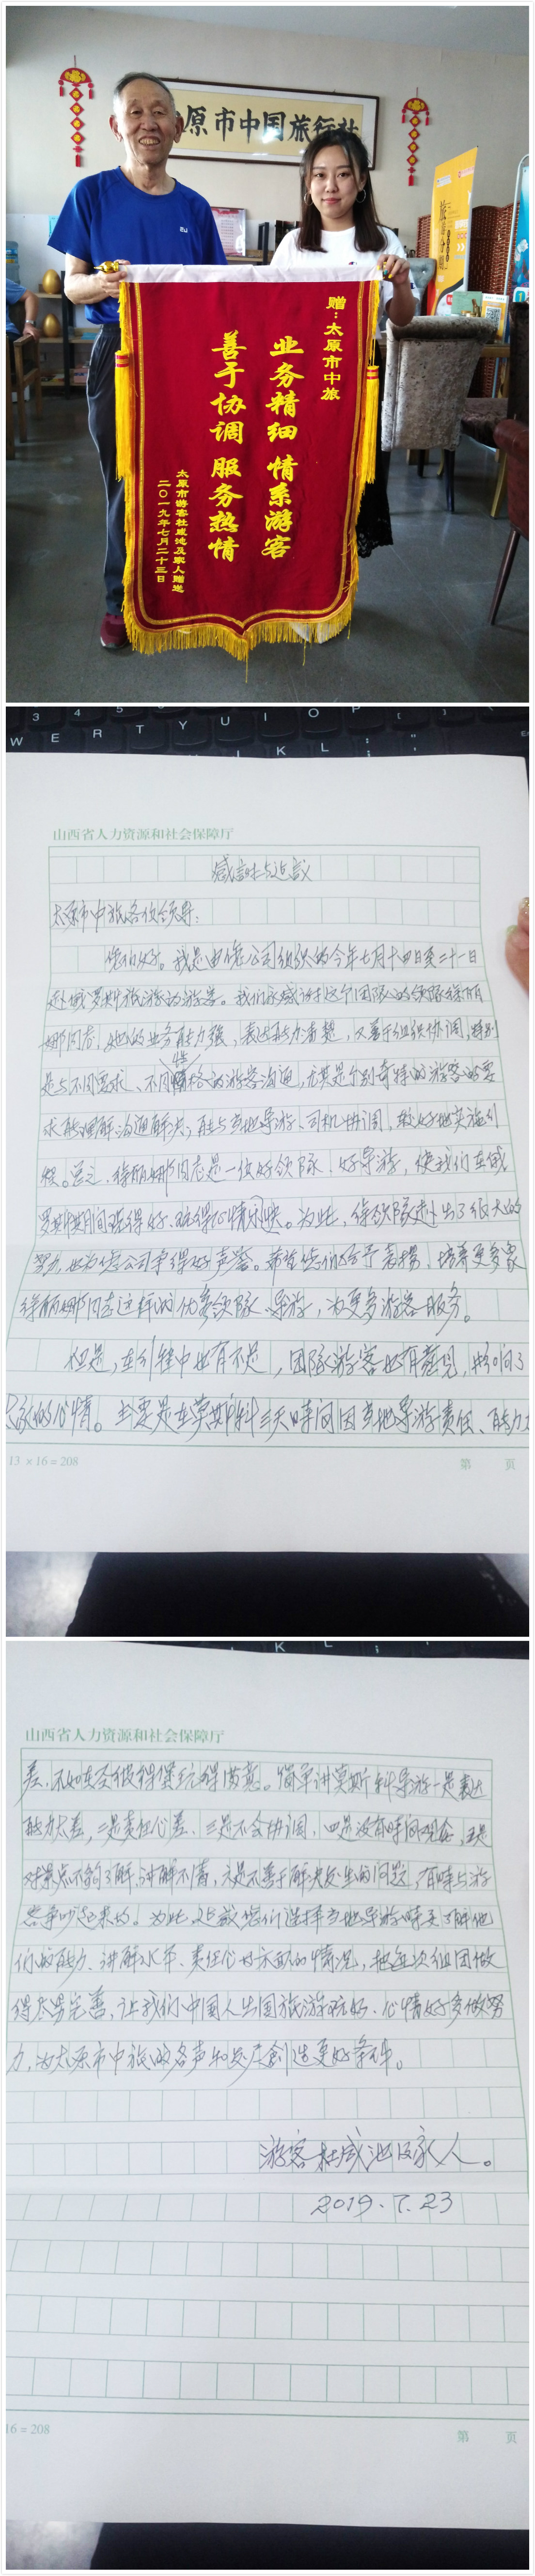 原市中国旅行社
赠：太原市中旅
业务精细 情系游客
善于协调 服务热情
太原市游客杜咸池及家人赠送
二〇一九年七月二十三日
3 4 5
W E R T Y U I O P
J K L
山西省人力资源和社会保障厅
感谢与建议
太原市中旅各位领导：
您们好。我是由您公司组织的今年七月十四日至二十一日
赴俄罗斯旅游的游客。我们永感谢这个团队的领队徐丽
娜同志，她的业务能力强，表达能力清楚，又善于组织协调，特别
是与不同要求、不同性格的游客沟通，尤其是个别奇特的游客的要
求能理解沟通解决；能与当地导游、司机协调，较好地实施计
划。总之，徐丽娜同志是一位好领队、好导游，使我们在俄
罗斯期间玩得好、玩得心情愉快。为此，徐领队付出了很大的
努力，也为您公司争得好声誉。希望您们给予表扬，培养更多象
徐丽娜同志这样的优秀领队、导游，为更多游客服务。
但是，在行程中也有不足，团队游客也有意见，影响了
大家的心情。主要是在莫斯科三天时间因当地导游责任、能力太
13 × 16 = 208
第 页
K L
山西省人力资源和社会保障厅
差，不如在圣彼得堡玩得满意。简单讲莫斯科导游一是表达
能力太差，二是责任心差，三是不会协调，四是没有时间观念，五是
对景点不够了解，讲解不清，六是不善于解决发生的问题，有时与游
客争吵起来的。为此，建议您们选择当地导游时要了解他
们的能力、讲解水平、责任心等方面的情况，把每次组团做
得尽善完善，让我们中国人出国旅游玩好、心情好多做努
力，为太原市中旅的名声和发展创造更好条件。
游客杜咸池及家人。
2019.7.23
16 = 208
第 页